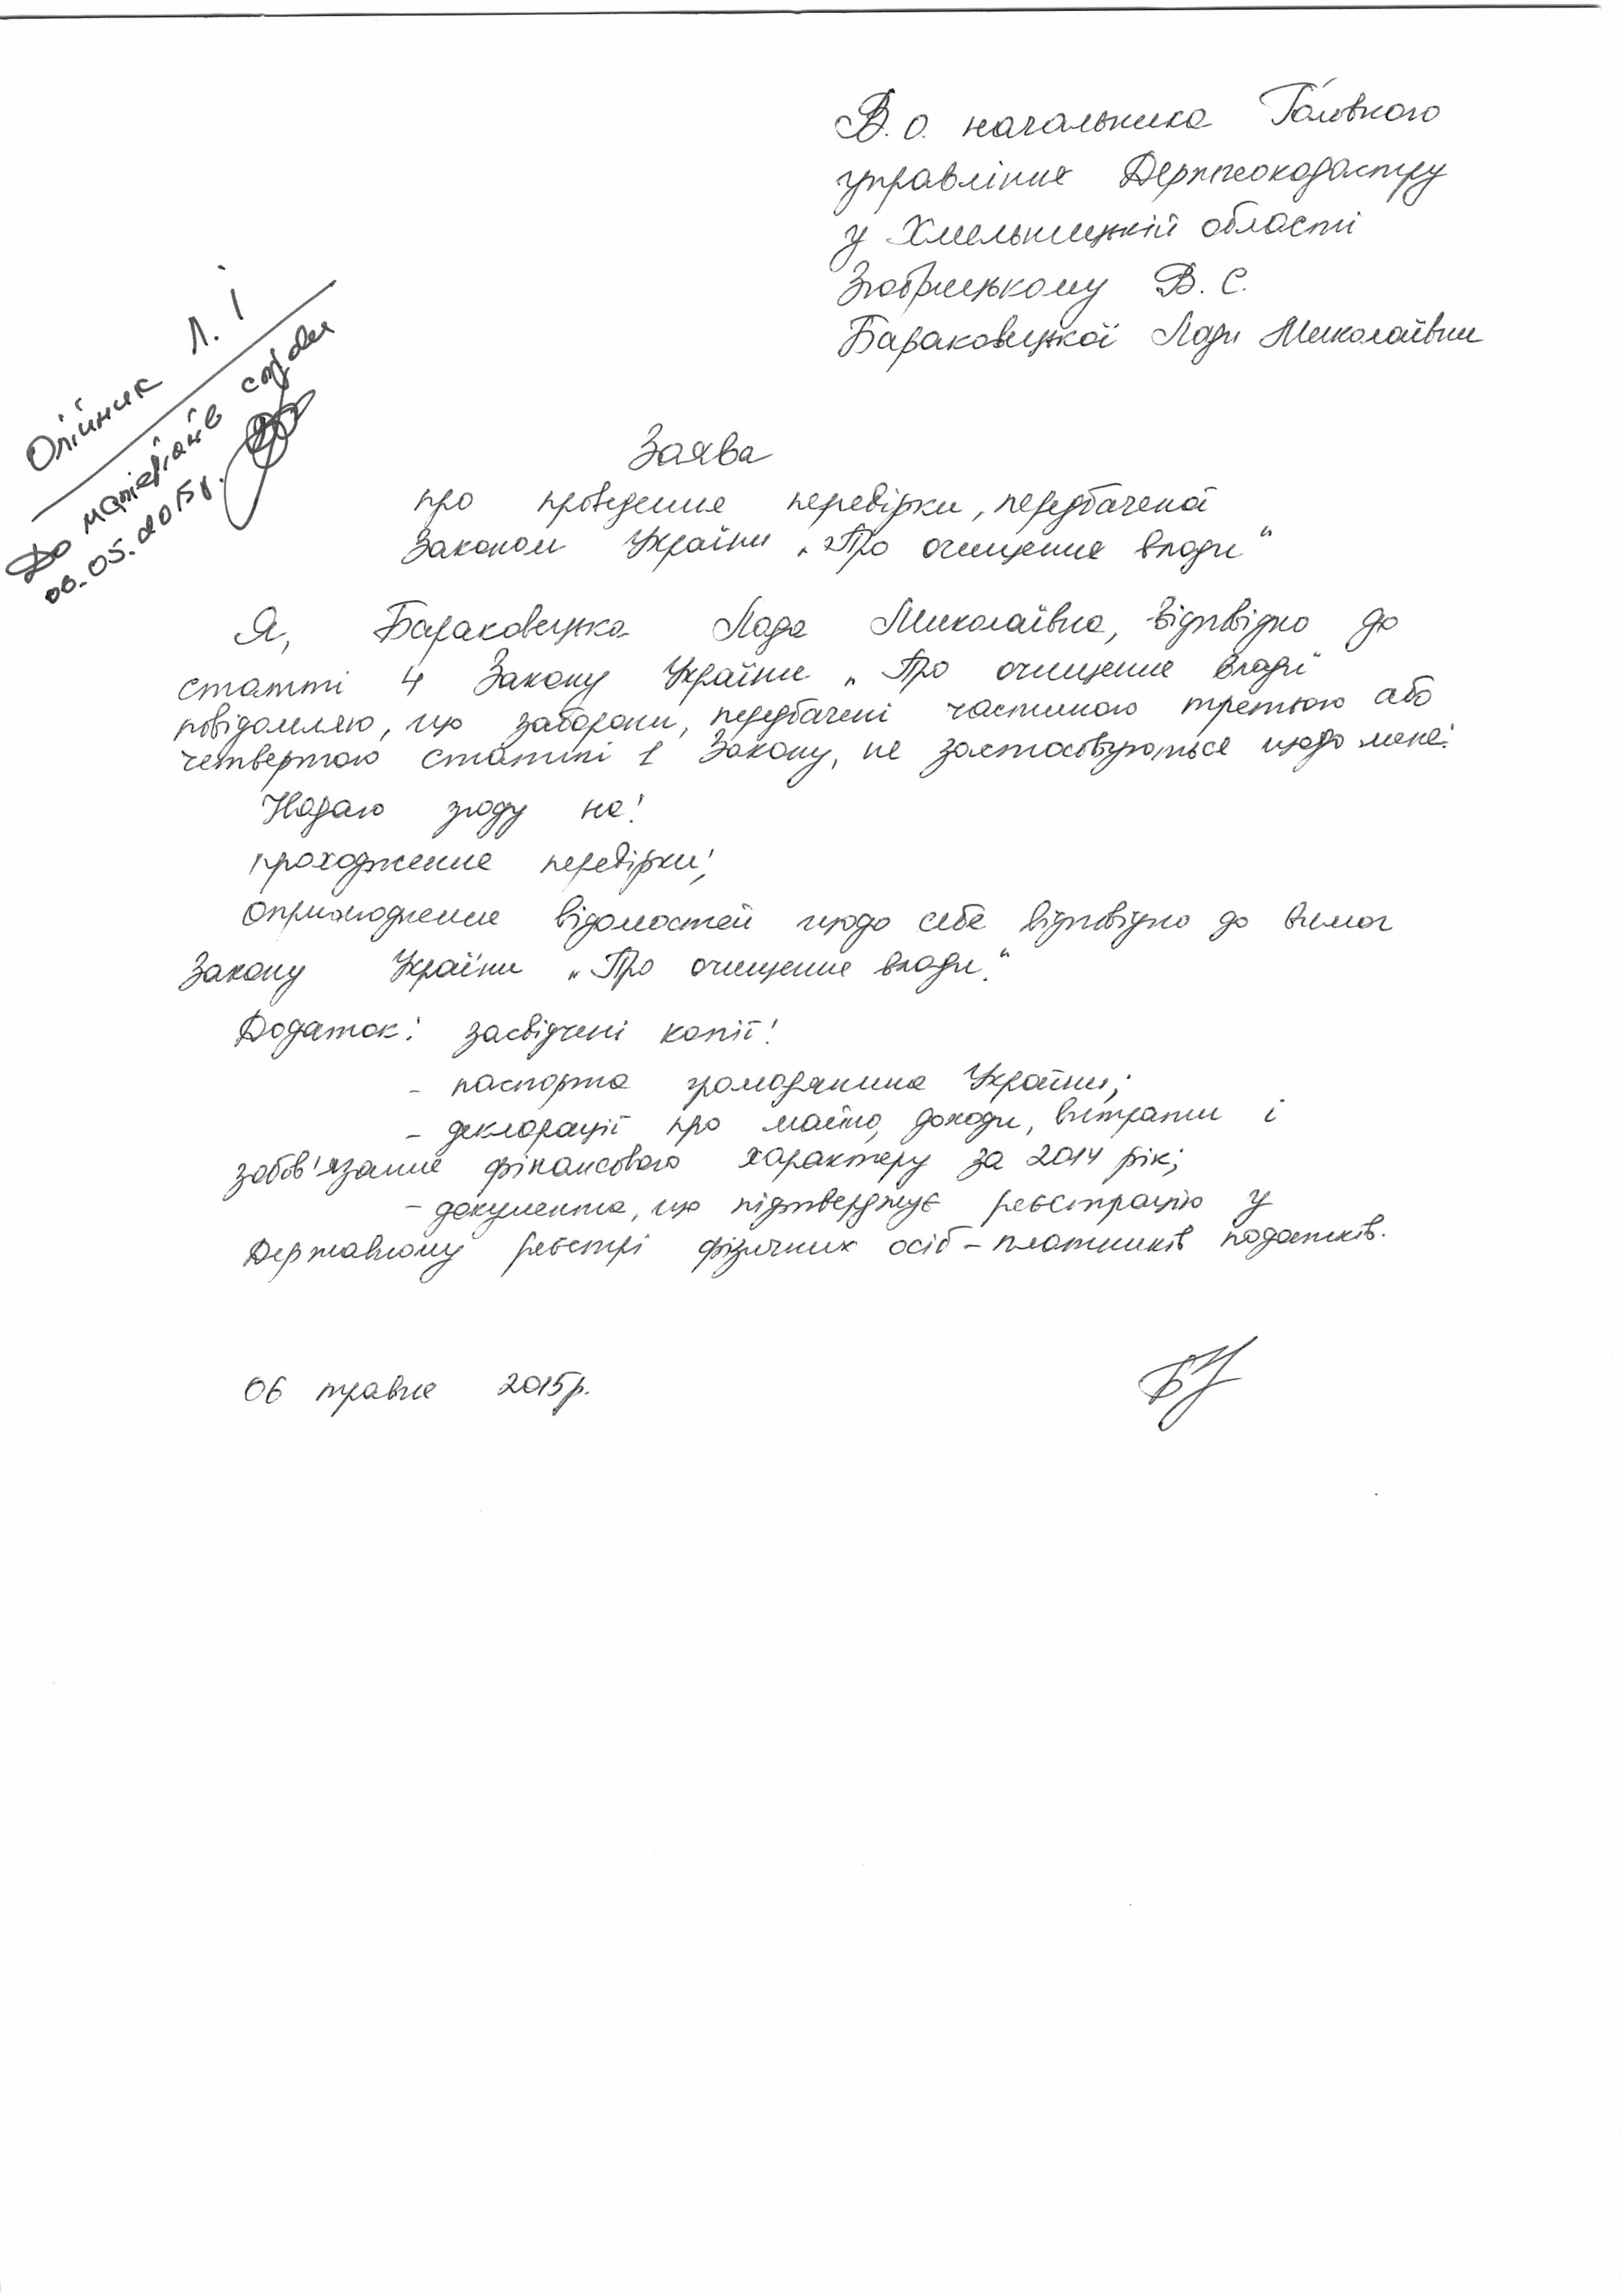 В.о. начальника Головного
управління Держгеокадастру
у Хмельницькій області
В. С.
Бараковицької Лади Миколаївни
Олійник Л. І
До матеріалів справи
06.05.2015р.
Заява
про проведення перевірки, передбаченої
Законом України „Про очищення влади"
Я, Бараковицька Лада Миколаївна, відповідно до
статті 4 Закону України „Про очищення влади"
повідомляю, що заборони, передбачені частиною третьою або
четвертою статті 1 Закону, не застосовуються щодо мене.
Надаю згоду на:
проходження перевірки;
оприлюднення відомостей щодо себе відповідно до вимог
Закону України „Про очищення влади."
Додаток: засвідчені копії:
- паспорта громадянина України;
- декларації про майно, доходи, витрати і
зобов'язання фінансового характеру за 2014 рік;
- документа, що підтверджує реєстрацію у
Державному реєстрі фізичних осіб – платників податків.
06 травня 2015р.